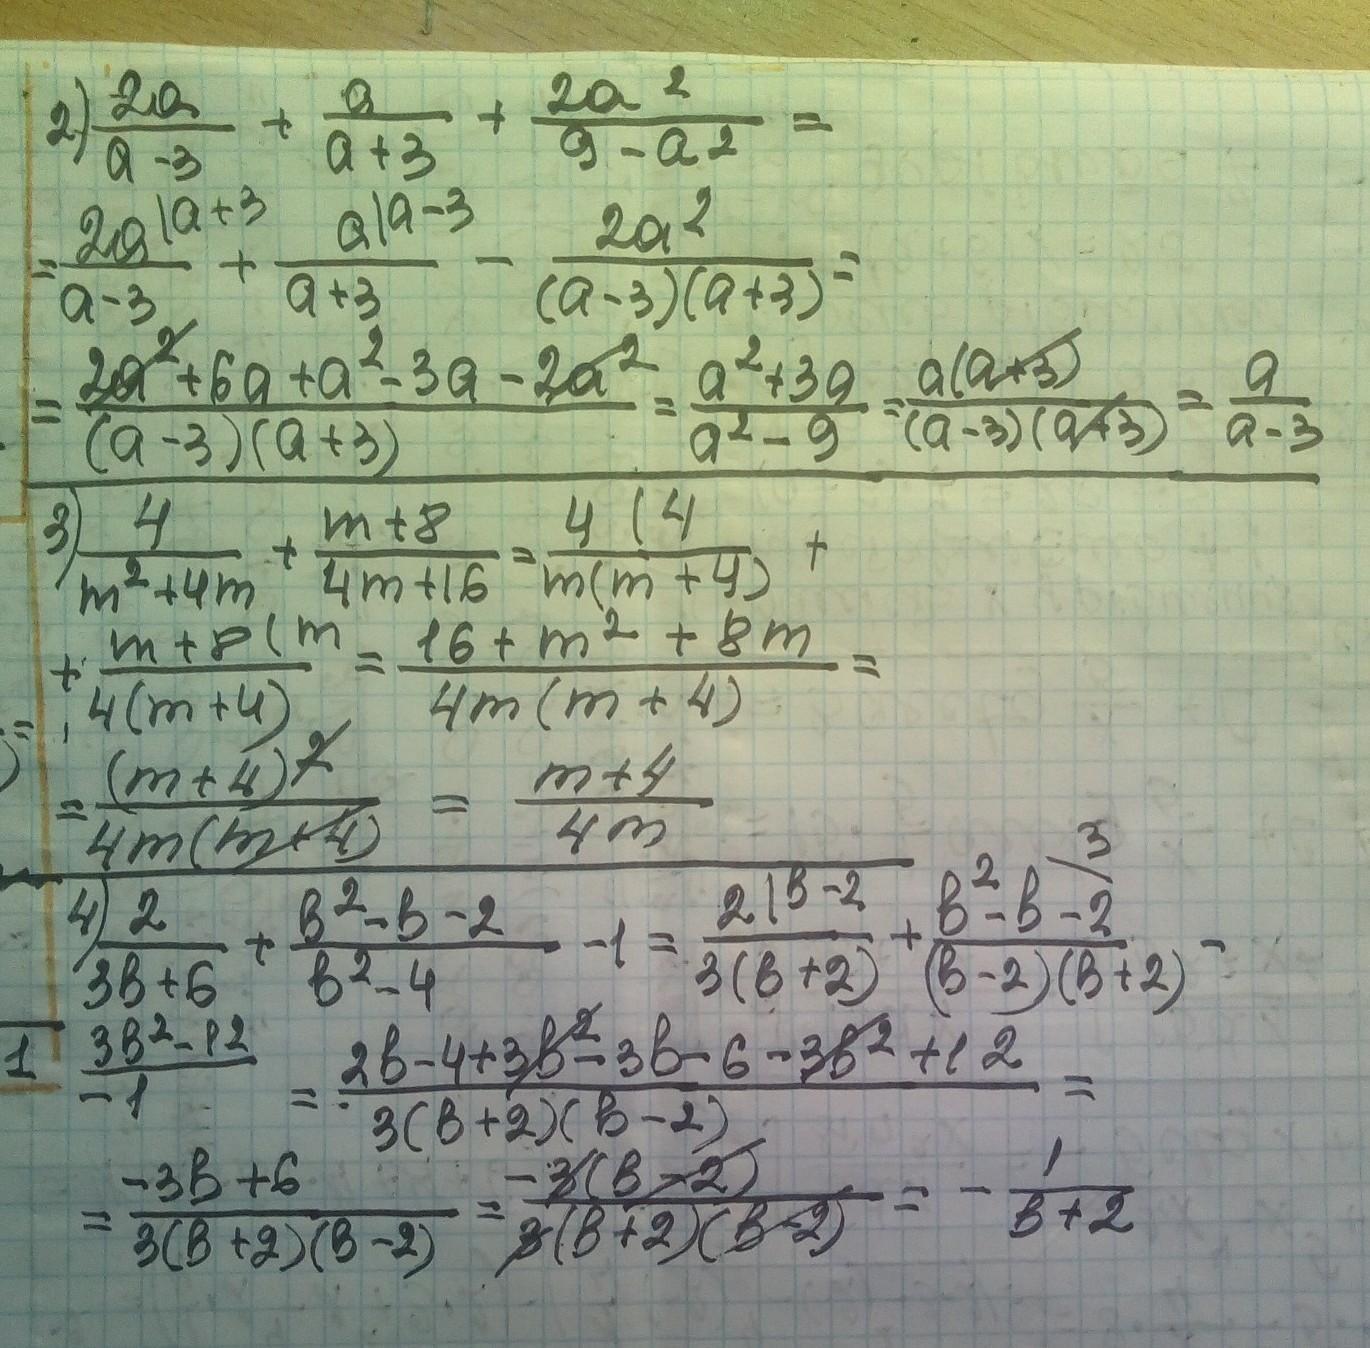 2) 2a/(a-3) + a/(a+3) + 2a²/(9-a²) =
= 2a|a+3/(a-3) + a|a-3/(a+3) - 2a²/((a-3)(a+3)) =
= (2a²+6a+a²-3a-2a²)/((a-3)(a+3)) = (a²+3a)/(a²-9) = a(a+3)/((a-3)(a+3)) = a/(a-3)
3) 4/(m²+4m) + (m+8)/(4m+16) = 4(4/(m(m+4)) +
+ m+8(m/(4(m+4)) = (16+m²+8m)/(4m(m+4)) =
= (m+4)²/(4m(m+4)) = (m+4)/(4m)
4) 2/(3в+6) + (в²-в-2)/(в²-4) -1 = 2|в-2/(3(в+2)) + (в²-в-2)\3/((в-2)(в+2)) -
1 (3в²-12)/(-1) = (2в-4+3в²-3в-6-3в²+12)/(3(в+2)(в-2)) =
= (-3в+6)/(3(в+2)(в-2)) = -3(в-2)/(3(в+2)(в-2)) = - 1/(в+2)